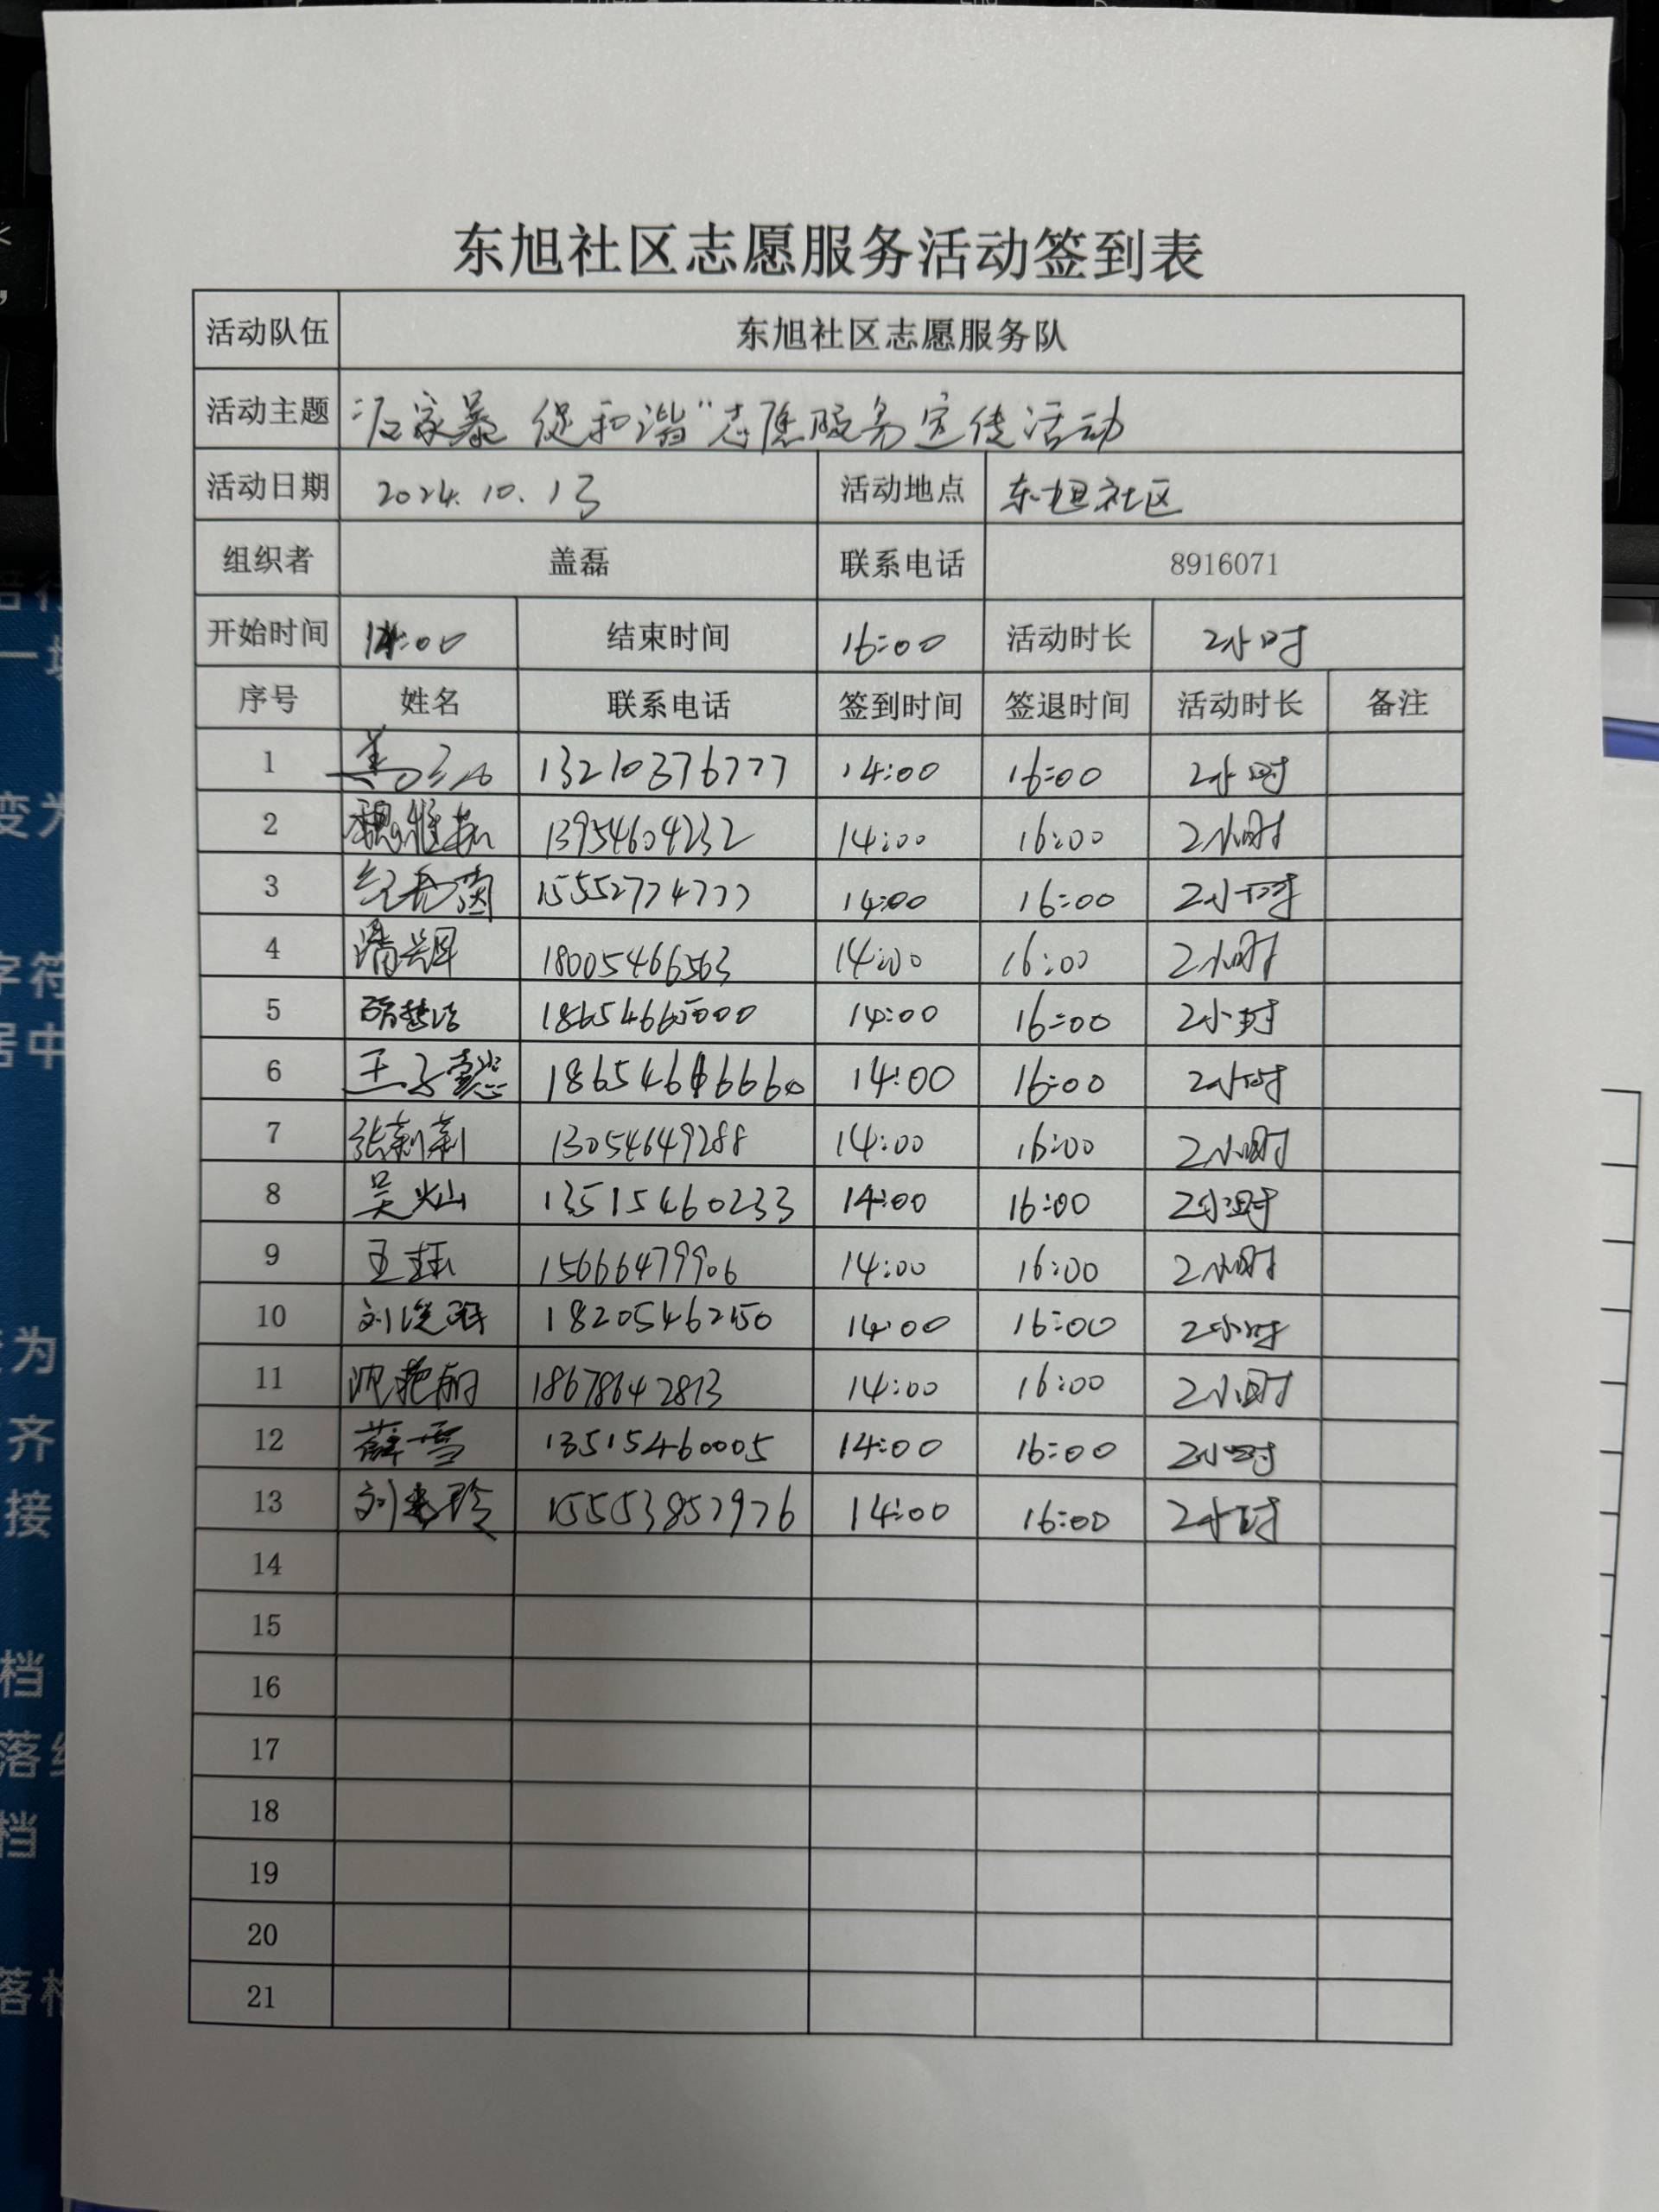 东旭社区志愿服务活动签到表
活动队伍 东旭社区志愿服务队
活动主题 反家暴 促和谐"志愿服务宣传活动
活动日期 2024.10.13 活动地点 东旭社区
组织者 盖磊 联系电话 8916071
开始时间 14:00 结束时间 16:00 活动时长 2小时
序号 姓名 联系电话 签到时间 签退时间 活动时长 备注
1 13210376777 14:00 16:00 2小时
2 13954604232 14:00 16:00 2小时
3 15552774777 14:00 16:00 2小时
4 18005466563 14:00 16:00 2小时
5 18654665000 14:00 16:00 2小时
6 王子懿 14:00 16:00 2小时
7 张莉莉 13054649288 14:00 16:00 2小时
8 吴灿 13515460233 14:00 16:00 2小时
9 王珏 15666479906 14:00 16:00 2小时
10 14:00 16:00 2小时
11 18678642813 14:00 16:00 2小时
12 薛雪 13515460005 14:00 16:00 2小时
13 15553857976 14:00 16:00 2小时
14
15
16
17
18
19
20
21
变为
字符
居中
为
齐
接
档
落
档
落格